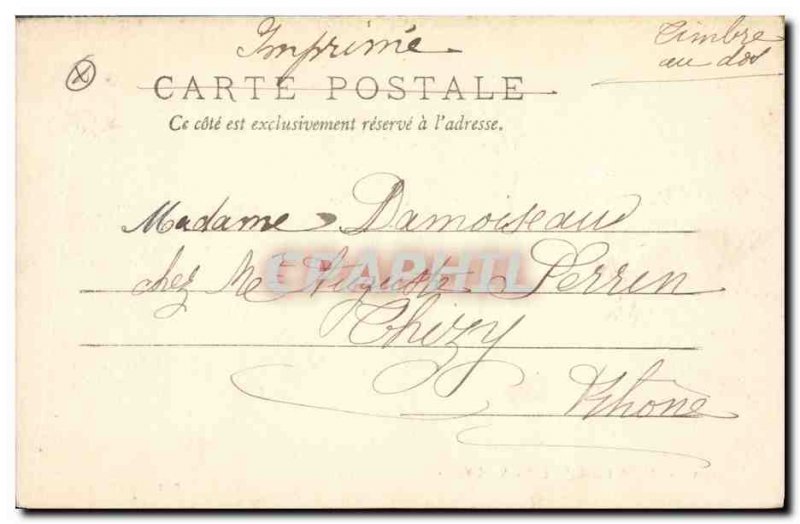 Imprimé
Timbre
au dos
CARTE POSTALE
Ce côté est exclusivement réservé à l'adresse.
Madame Damoiseau
chez Me Perrin
Thizy
Rhône